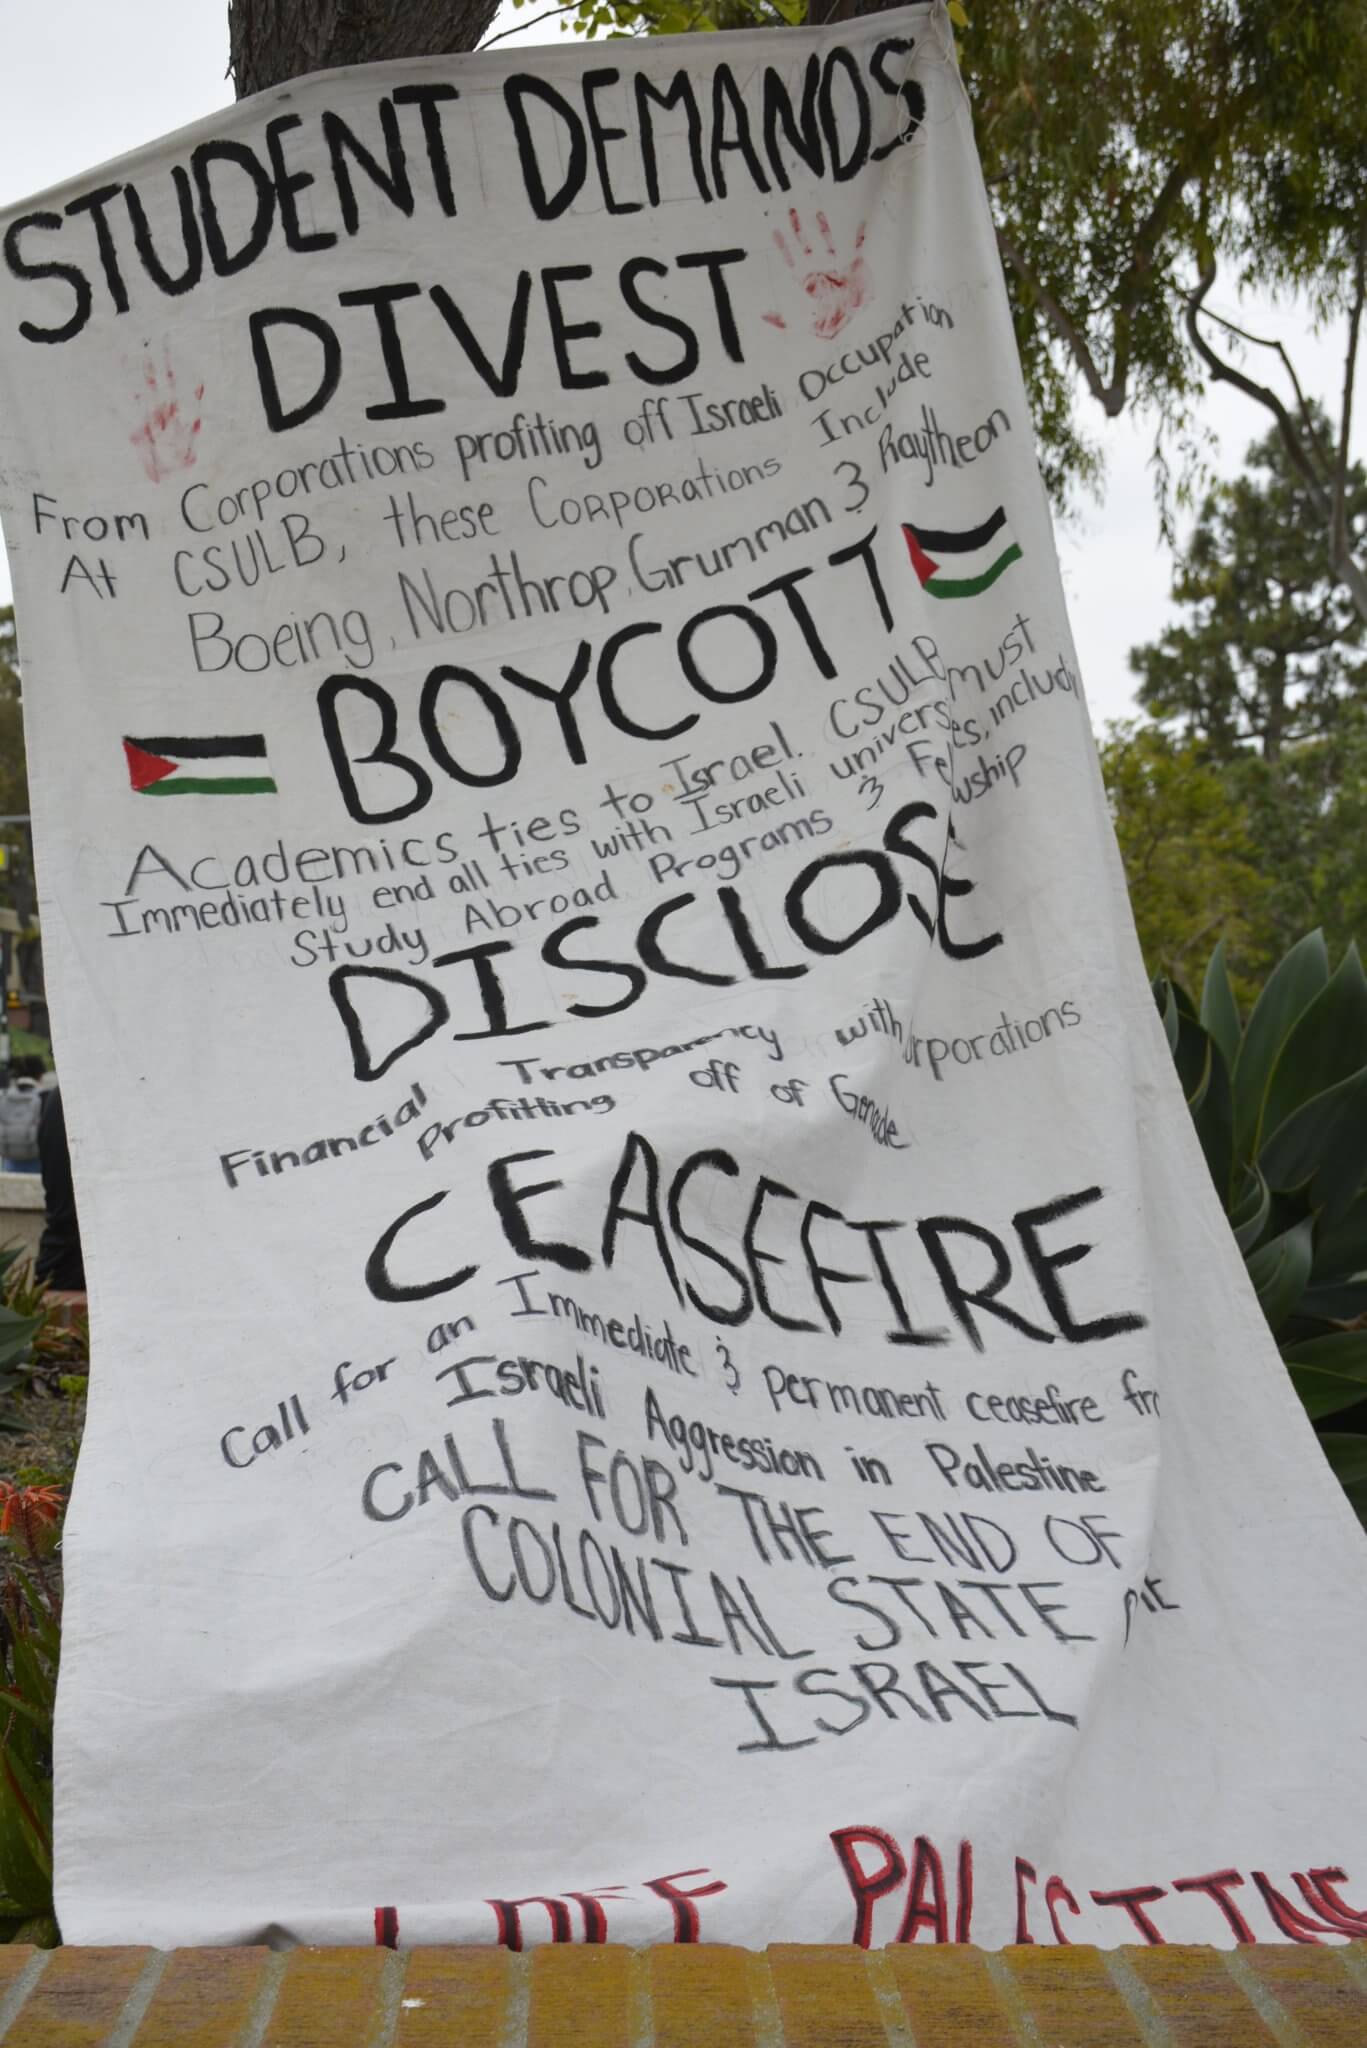 STUDENT DEMANDS
DIVEST
From Corporations profiting off Israeli Occupation
At CSULB, these Corporations Include
Boeing, Northrop, Grumman & Raytheon
BOYCOTT
Academics ties to Israel. CSULB must
Immediately end all ties with Israeli universties, includi
Study Abroad Programs & Fellowship
DISCLOSE
Financial Transparency with orporations
profitling off of Genocide
CEASEFIRE
Call for an Immediate & permanent ceasefire fr
Israeli Aggression in Palestine
CALL FOR THE END OF
COLONIAL STATE
ISRAEL
FREE PALESTINE